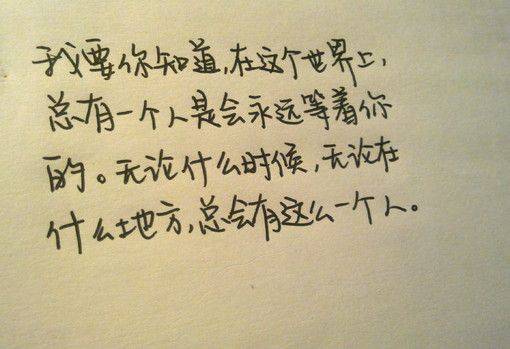 我要你知道,在这个世界上,
总有一个人是会永远等着你
的。无论什么时候,无论在
什么地方,总会有这么一个人。